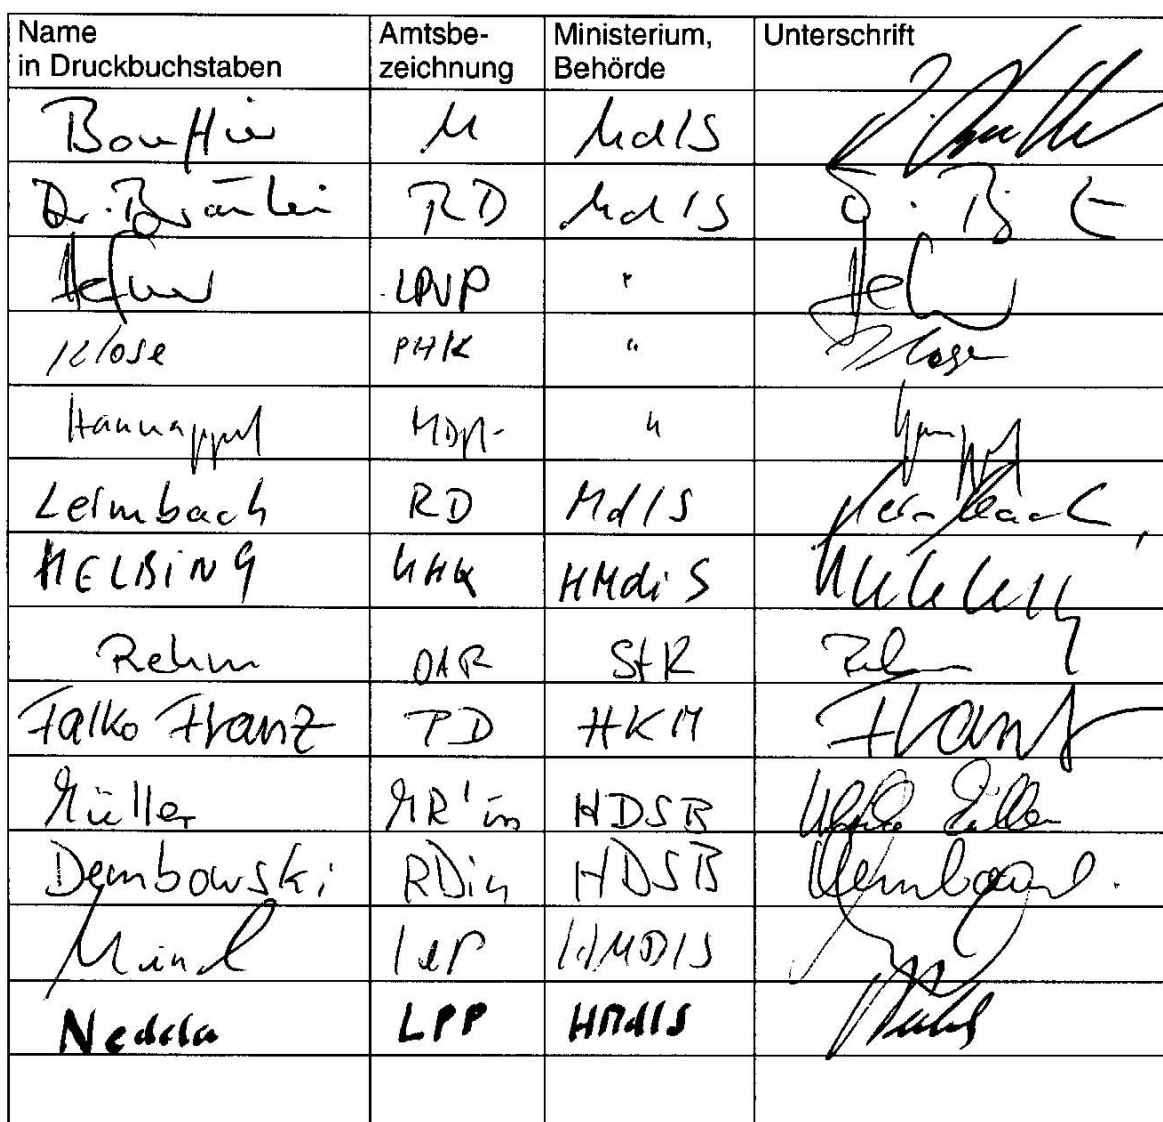 Name in Druckbuchstaben Amtsbezeichnung Ministerium, Behörde Unterschrift
Bouffier M MdIS
Dr. Bräunlein RD MdIS
Hefner LPVP "
Klose PHK " Klose
Hannappel MDgt. "
Leimbach RD MdIS Leimbach
HELBiNG KHK HMdiS
Rehm OAR StK Rehm
Falko Franz PD HKM Franz
Müller MR'in HDSB Müller
Dembowski RDin HDSB
HMDIS
Nedela LPP HMdIS